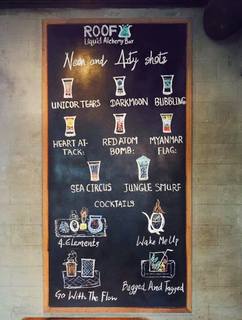 ROOF
Liquid Alchemy Bar
Neon and Arty shots
UNICOR TEARS
DARKMOON
BUBBLING
HEART AT-
TACK:
RED ATOM
BOMB:
MYANMAR
FLAG:
SEA CIRCUS
JUNGLE SMURF
COCKTAILS
4 Elements
Wake Me Up
Go With The Flow
Bugged And Tagged